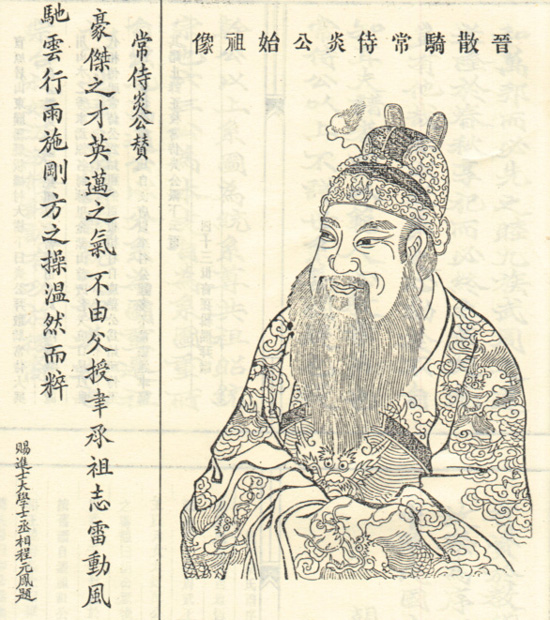 晉散騎常侍炎公始祖像
常侍炎公賛
豪傑之才英邁之氣不由父授聿承祖志雷動風
馳雲行雨施剛方之操溫然而粹
賜進士大學士丞相程元鳳題